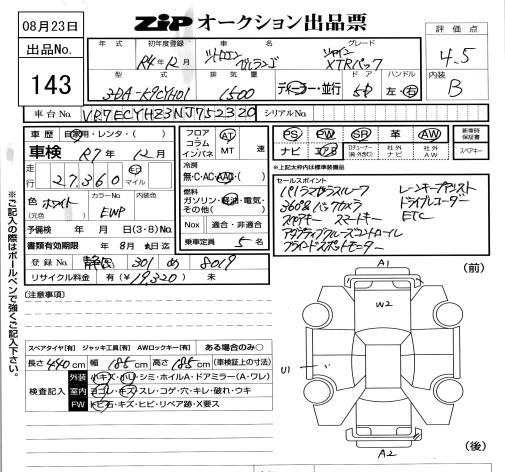 08月23日
ZiP オークション出品票
出品No.
143
年式 初年度登録 車名 グレード
R4年12月 シトロエン ベルランゴ シャイン XTRパック
型式 排気量 ドア ハンドル
3DA-K9CYH01 1500 ディーラー・並行 5D 左・右
評価点
4.5
内装
B
車台No. VR7ECYHZ3NJ752320 シリアルNo.
車歴 自家用・レンタ・( )
車検 R7年12月
走行 27,360 km マイル
色 ホワイト (元色) カラーNo. EWP 内装色
予備検 年 月 日(3・8)No.
書類有効期限 年8月 日迄
登録No. 静岡 301 め 8019
リサイクル料金 有(¥19,320) 未
フロア コラム インパネ AT MT 速
冷房 無・C・AC・AAC・( )
燃料 ガソリン・軽油・電気・その他( )
Nox 適合・非適合
乗車定員 5名
PS PW SR 革 AW
ナビ エアB Dチューナー(純・外含む) 社外ナビ 社外AW
新車時保証書
スペアキー
*上記太枠内は標準装備品
セールスポイント
パノラマガラスルーフ レーンキープアシスト
360°バックカメラ ドライブレコーダー
スペアキー スマートキー ETC
アダプティブクルーズコントロール
ブラインドスポットモニター
(注意事項)
スペアタイヤ[有] ジャッキ工具[有] AWロックキー[有] ある場合のみ○
長さ440cm 幅185cm 高さ185cm (車検証上の寸法)
検査記入
外装 小キズ・小凹・シミ・ホイルA・ドアミラー(A・ワレ)
室内 ヨゴレ・キズ・スレ・コゲ・穴・キレ・破れ・ウキ
FW トビ石・キズ・ヒビ・リペア跡・X要ス
A1
(前)
W2
U1
A2
(後)
※ご記入の際はボールペンで強くご記入下さい。